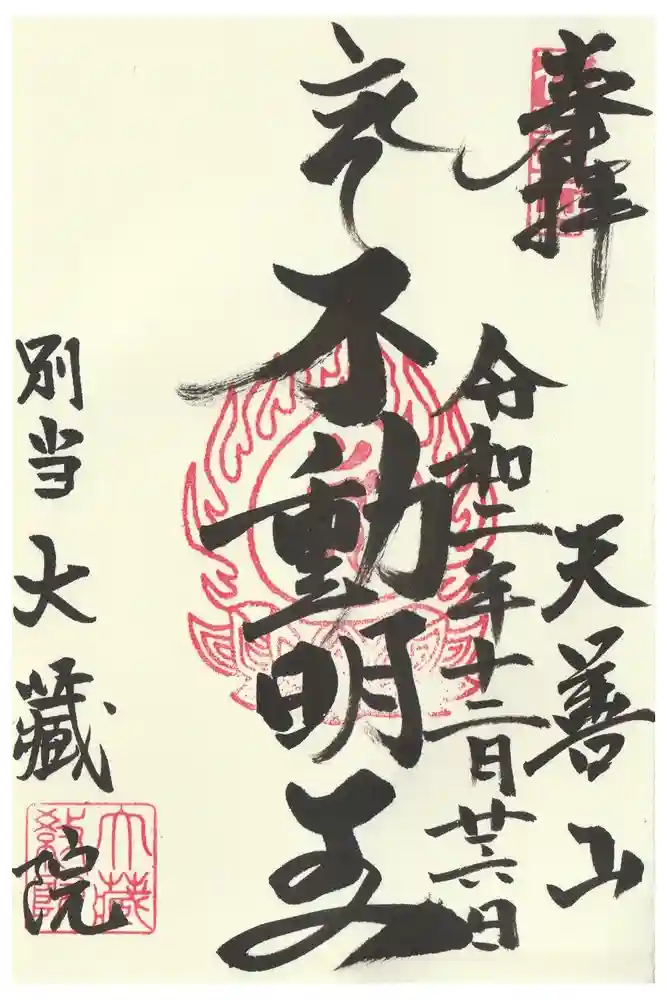 奉拝
天善山
令和二年十二月廿六日
不動明王
別当 大蔵院